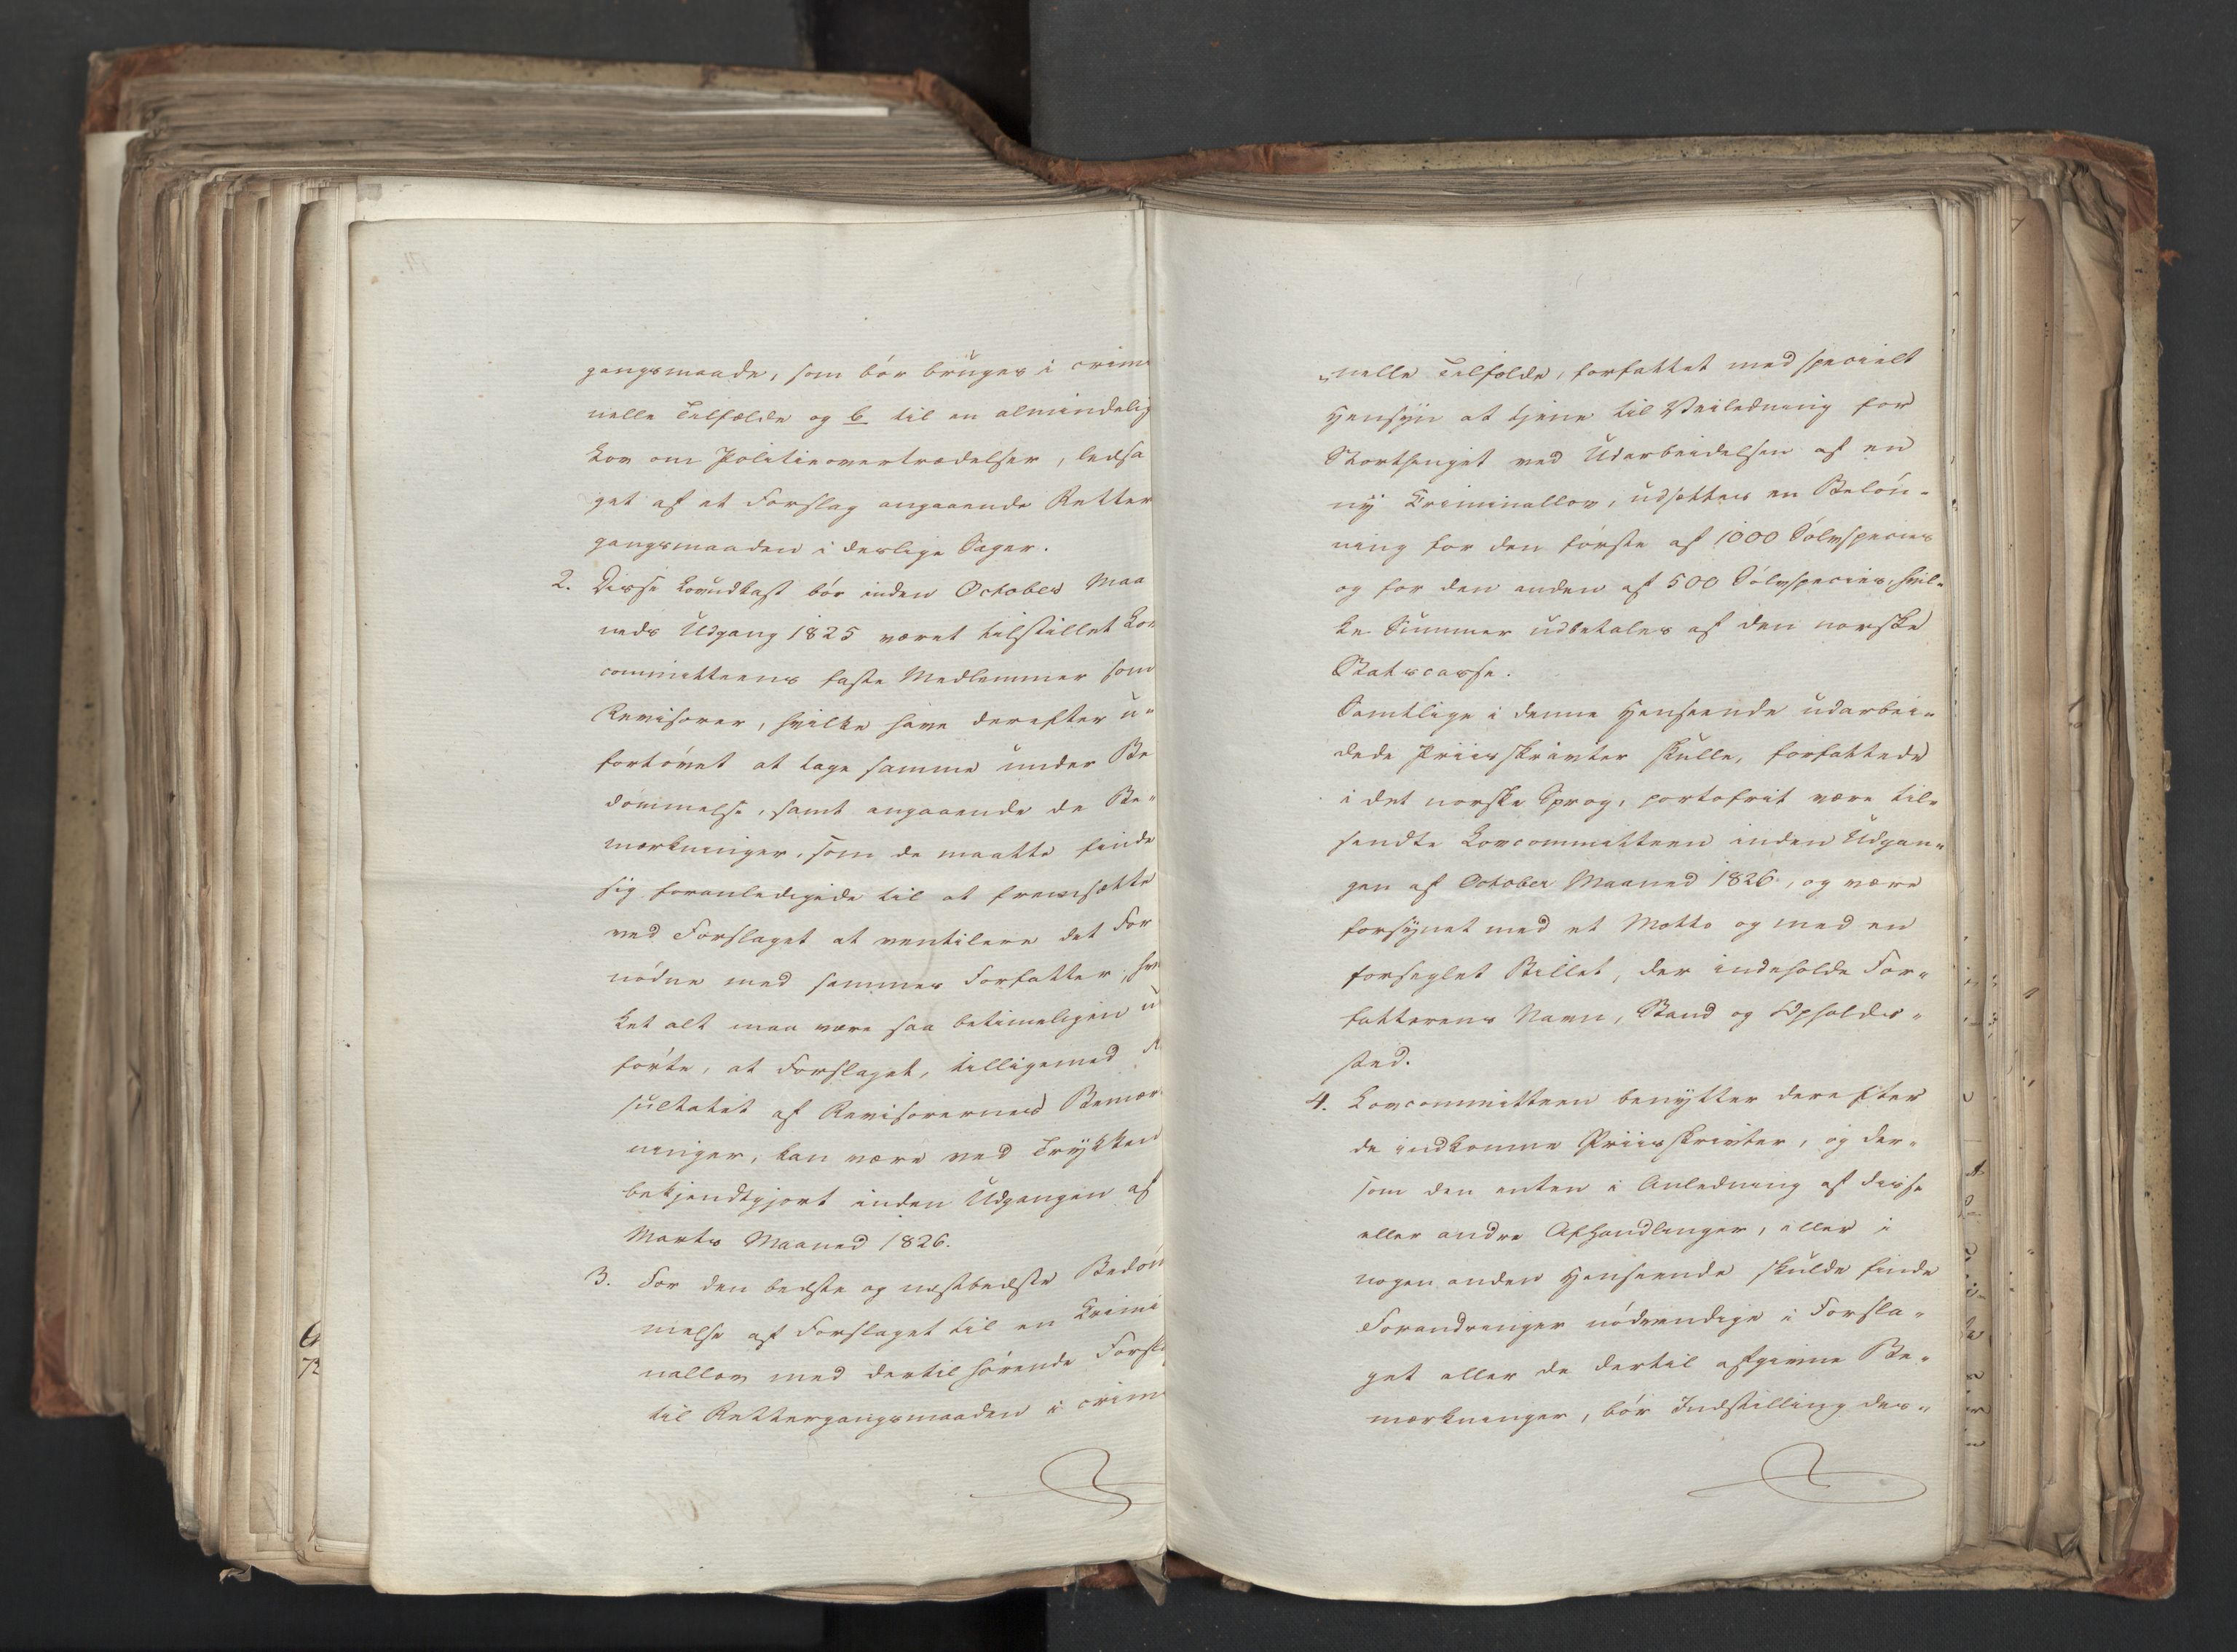 gangsmaade, som bör bruges i crimi
nelle Tilfælde og b til en almindelig
Lov om Politieovertrædelser, ledsa
get af et Forslag angaaende Retter
gangsmaaden i deslige Sager.
2. Disse Lovudkast bör inden October Maa
neds Udgang 1825 været tilstillet Lov
committeens faste Medlemmer som
Revisorer, hvilke have derefter u-
fortövet at tage samme under Be
dömmelse, samt angaaende de Be-
mærkninger, som de maatte finde
sig foranledigede til at fremsætte
ved Forslaget at ventilere det For
nödne med sammes Forfatter, hvi
ket alt maa være saa betimeligen u
förte, at Forslaget, tilligemed R
sultatet af Revisorernes Bemær
ninger, kan være ved Trykken
bekjendtgjort inden Udgangen af
Marts Maaned 1826.
3. For den bedste og næstbedste Bedöm
melse af Forslaget til en Crimi
nallov med dertil hörende Forsla
til Rettergangsmaaden i crimi
nelle Tilfælde, forfattet med specielt
Hensyn at tjene til Veiledning for
Storthinget ved Udarbeidelsen af en
ny Criminallov, udsættes en Belön-
ning for den förste af 1000 Sölvspecies
og for den anden af 500 Sölvspecies, hvil-
ke Summer udbetales af den norske
Statscasse.
Samtlige i denne Henseende udarbei-
dede Priisskrivter skulle, forfattede
i det norske Sprog, portofrit være til-
sendte Lovcommitteen inden Udgan-
gen af October Maaned 1826, og være
forsynet med et Motto og med en
forseglet Billet, der indeholde For-
fatterens Navn, Stand og Opholds-
sted.
4. Lovcommitteen benytter derefter
de indkomne Priisskrivter, og der-
som den enten i Anledning af disse
eller andre Afhandlinger, eller i
nogen anden Henseende skulde finde
Forandringer nödvendige i Forsla-
get eller de dertil afgivne Be-
mærkninger, bör Indstilling des-